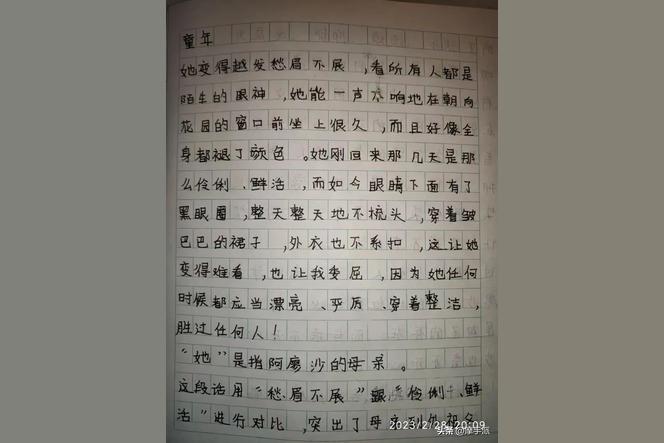 童年
她变得越发愁眉不展,看所有人都是
陌生的眼神,她能一声不响地在朝向
花园的窗口前坐上很久,而且好像全
身都褪了颜色。她刚回来那几天是那
么伶俐、鲜活,而如今眼睛下面有了
黑眼圈,整天整天地不梳头,穿着皱
巴巴的裙子,外衣也不系扣,这让她
变得难看,也让我委屈,因为她任何
时候都应当漂亮、严厉、穿着整洁,
胜过任何人!
“她”是指阿廖沙的母亲。
这段话用“愁眉不展”跟“伶俐、鲜
活”进行对比,突出了母亲
2023/2/28 20:09
头条@摩宇派